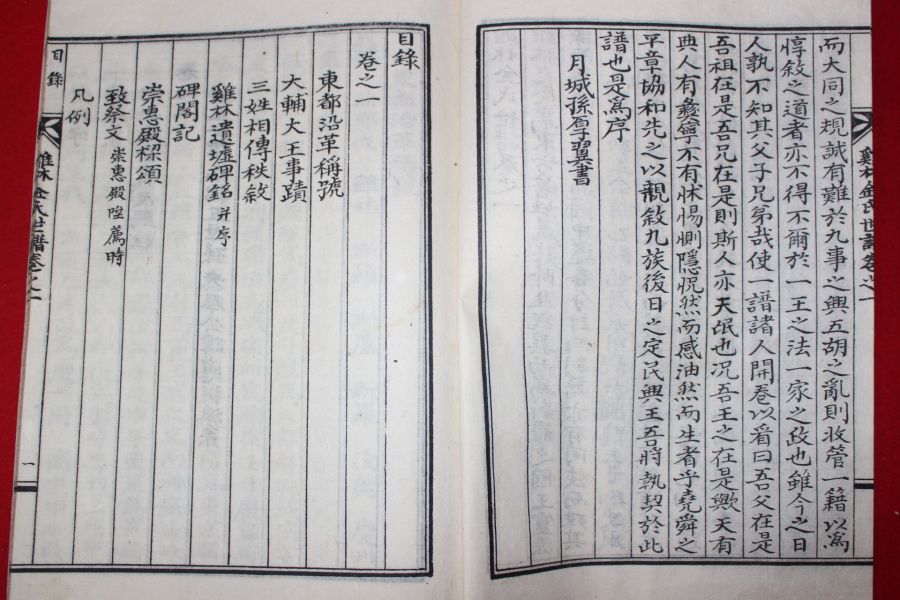 而大同之規誠有難於九事之興五胡之亂則收管一籍以爲
惇敘之道者亦不得不爾於一王之法一家之政也雖今之日
人孰不知其父子兄弟哉使一譜諸人開卷以看曰吾父在是
吾祖在是吾兄在是則斯人亦天氓也况吾王之在是歟天有
典人有彜寧不有怵惕惻隱怳然而感油然而生者乎堯舜之
平章協和先之以親敘九族後日之定民興王吾將執契於此
譜也是爲序
月城孫厚翼書
雞林金氏世譜卷之一
目錄
卷之一
東都沿革稱號
大輔大王事蹟
三姓相傳秩敘
雞林遺墟碑銘 幷序
碑閣記
崇惠殿樑頌
致祭文 崇惠殿陞薦時
凡例
目錄
雞林金氏世譜卷之一
一